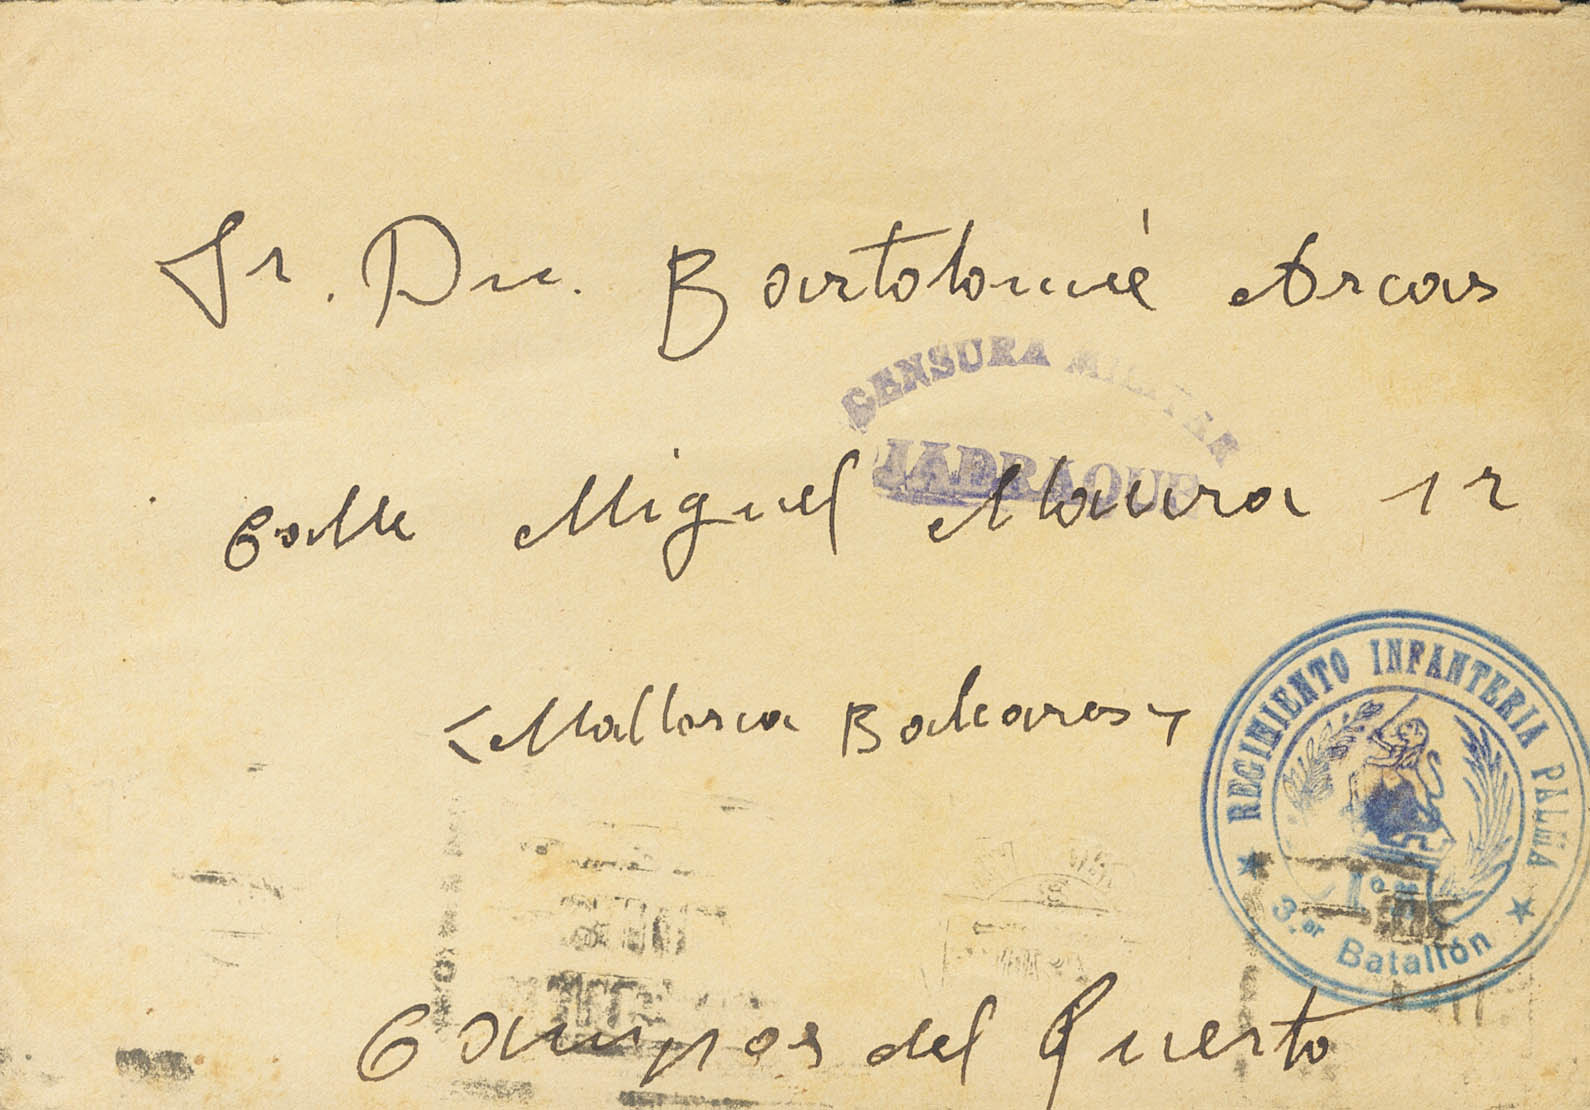 Sr. Dn. Bartolomé Arcas
CENSURA MILITAR
JADRAQUE
Calle Miguel Maura 12
(Mallorca Baleares)
REGIMIENTO INFANTERIA PALMA
1º
3.er Batallón
Campos del Puerto